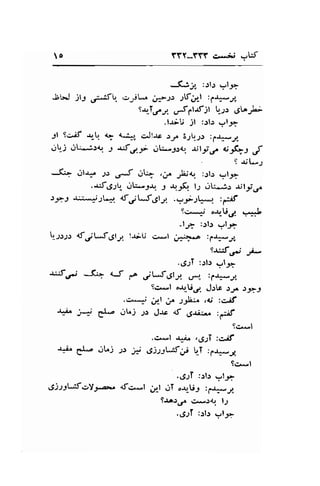 کتاب نخست ۳۳۳-۳۳۲ ۱۵
جواب داد: پزشک
پرسیدم: این کار در حین مسافرت باکشتی و از لحاظ
خطرهای دریا از کدام کس برمی‌آید؟
جواب داد: از ناخدا.
پرسیدم: دربارهٔ مرد عدالت پیشه چه باید گفت؟ او
کی و چگونه می‌تواند بدوستان خوبی کند و به دشمنان زیان
رساند؟
جواب داد: به نظر من، چنان کسی در میدان جنگ
می‌تواند دشمنان را بکوبد و بدوستان یاری کند.
گفتم: بسیارخوب. برای کسانی که بیمار نیستند وجود
طبیب بی‌فایده نیست؟
جواب داد: چرا.
پرسیدم: همچنین است ناخدا برای کسانی که در دریا
سفر نمی‌کنند؟
جواب داد: آری.
پرسیدم: پس برای کسانی هم که جنگ نمی‌کنند
وجود مرد عادل بی‌فایده است؟
گفت: نه، منظور من این نیست.
گفتم: معتقدی که عدل در زمان صلح نیز مفید
است؟
گفت: آری، مفید است.
پرسیدم: آیا فن کشاورزی نیز در زمان صلح مفید
است؟
جواب داد: آری.
پرسیدم: و فایده آن این است که محصولات کشاورزی
را به دست می‌دهد؟
جواب داد: آری.